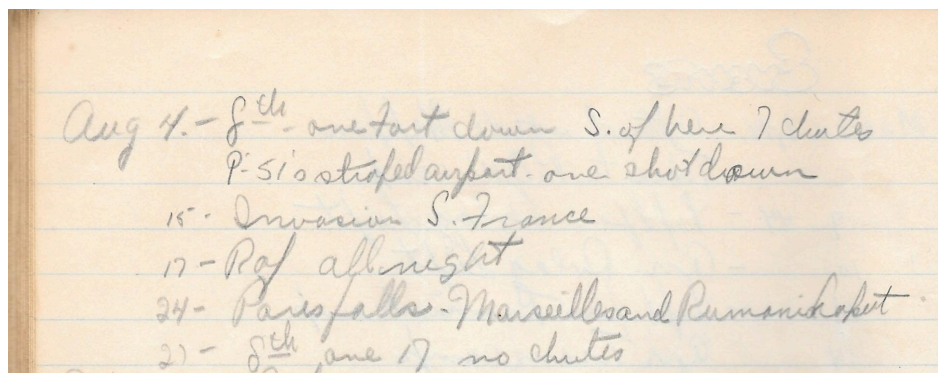 Aug 4. - 8th - one Fort down S. of here 7 chutes
P-51's strafed airport - one shot down
15 - Invasion S. France
17 - Raf all night
24 - Paris falls - Marseilles and Rumani kaput
27 - 8th one 17 no chutes